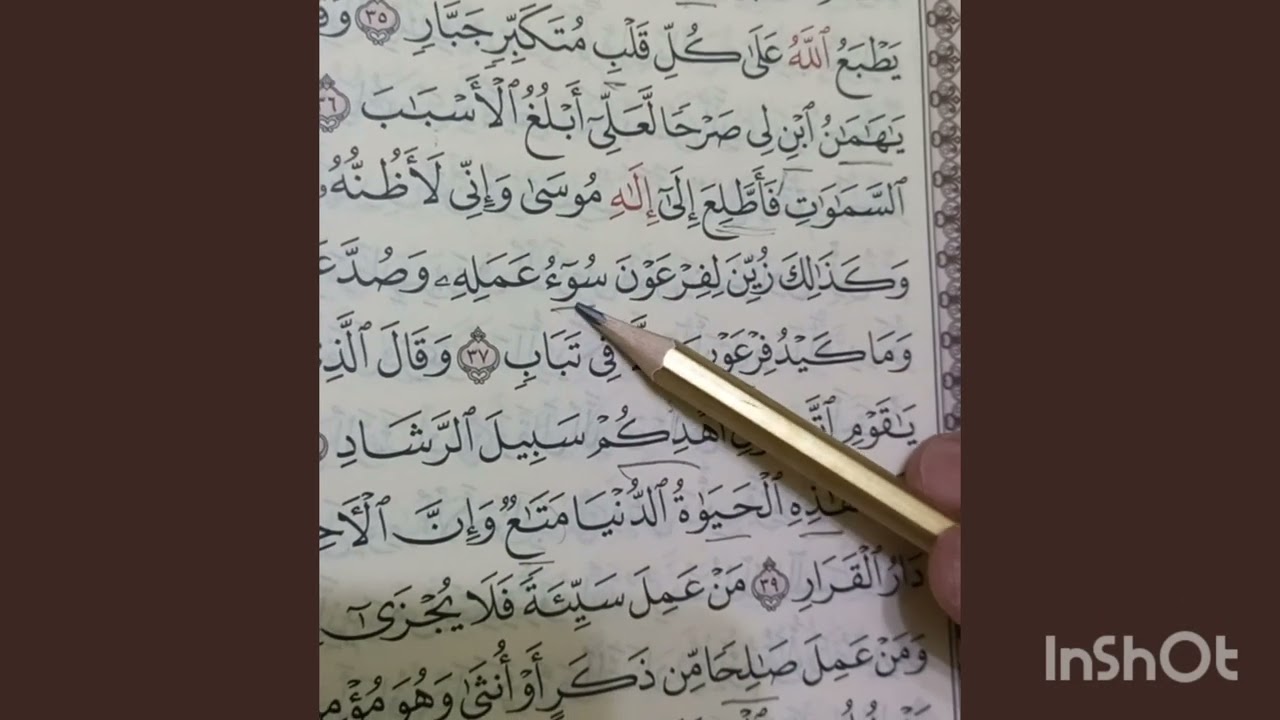 يَطْبَعُ ٱللَّهُ عَلَىٰ كُلِّ قَلْبِ مُتَكَبِّرٍ جَبَّارٍ ٣٥
يَٰهَٰمَٰنُ ٱبْنِ لِي صَرْحًا لَّعَلِّيٓ أَبْلُغُ ٱلْأَسْبَٰبَ ٣٦
ٱلسَّمَٰوَٰتِ فَأَطَّلِعَ إِلَىٰٓ إِلَٰهِ مُوسَىٰ وَإِنِّي لَأَظُنُّهُۥ
وَكَذَٰلِكَ زُيِّنَ لِفِرْعَوْنَ سُوٓءُ عَمَلِهِۦ وَصُدَّ
وَمَا كَيْدُ فِرْعَوْنَ فِي تَبَابٍ ٣٧ وَقَالَ
يَٰقَوْمِ أَهْدِكُمْ سَبِيلَ ٱلرَّشَادِ
هَٰذِهِ ٱلْحَيَوٰةُ ٱلدُّنْيَا مَتَٰعٌ وَإِنَّ
دَارُ ٱلْقَرَارِ ٣٩ مَنْ عَمِلَ سَيِّئَةً فَلَا يُجْزَىٰٓ
وَمَنْ عَمِلَ صَٰلِحًا مِّن ذَكَرٍ أَوْ أُنثَىٰ وَهُوَ
InShOt